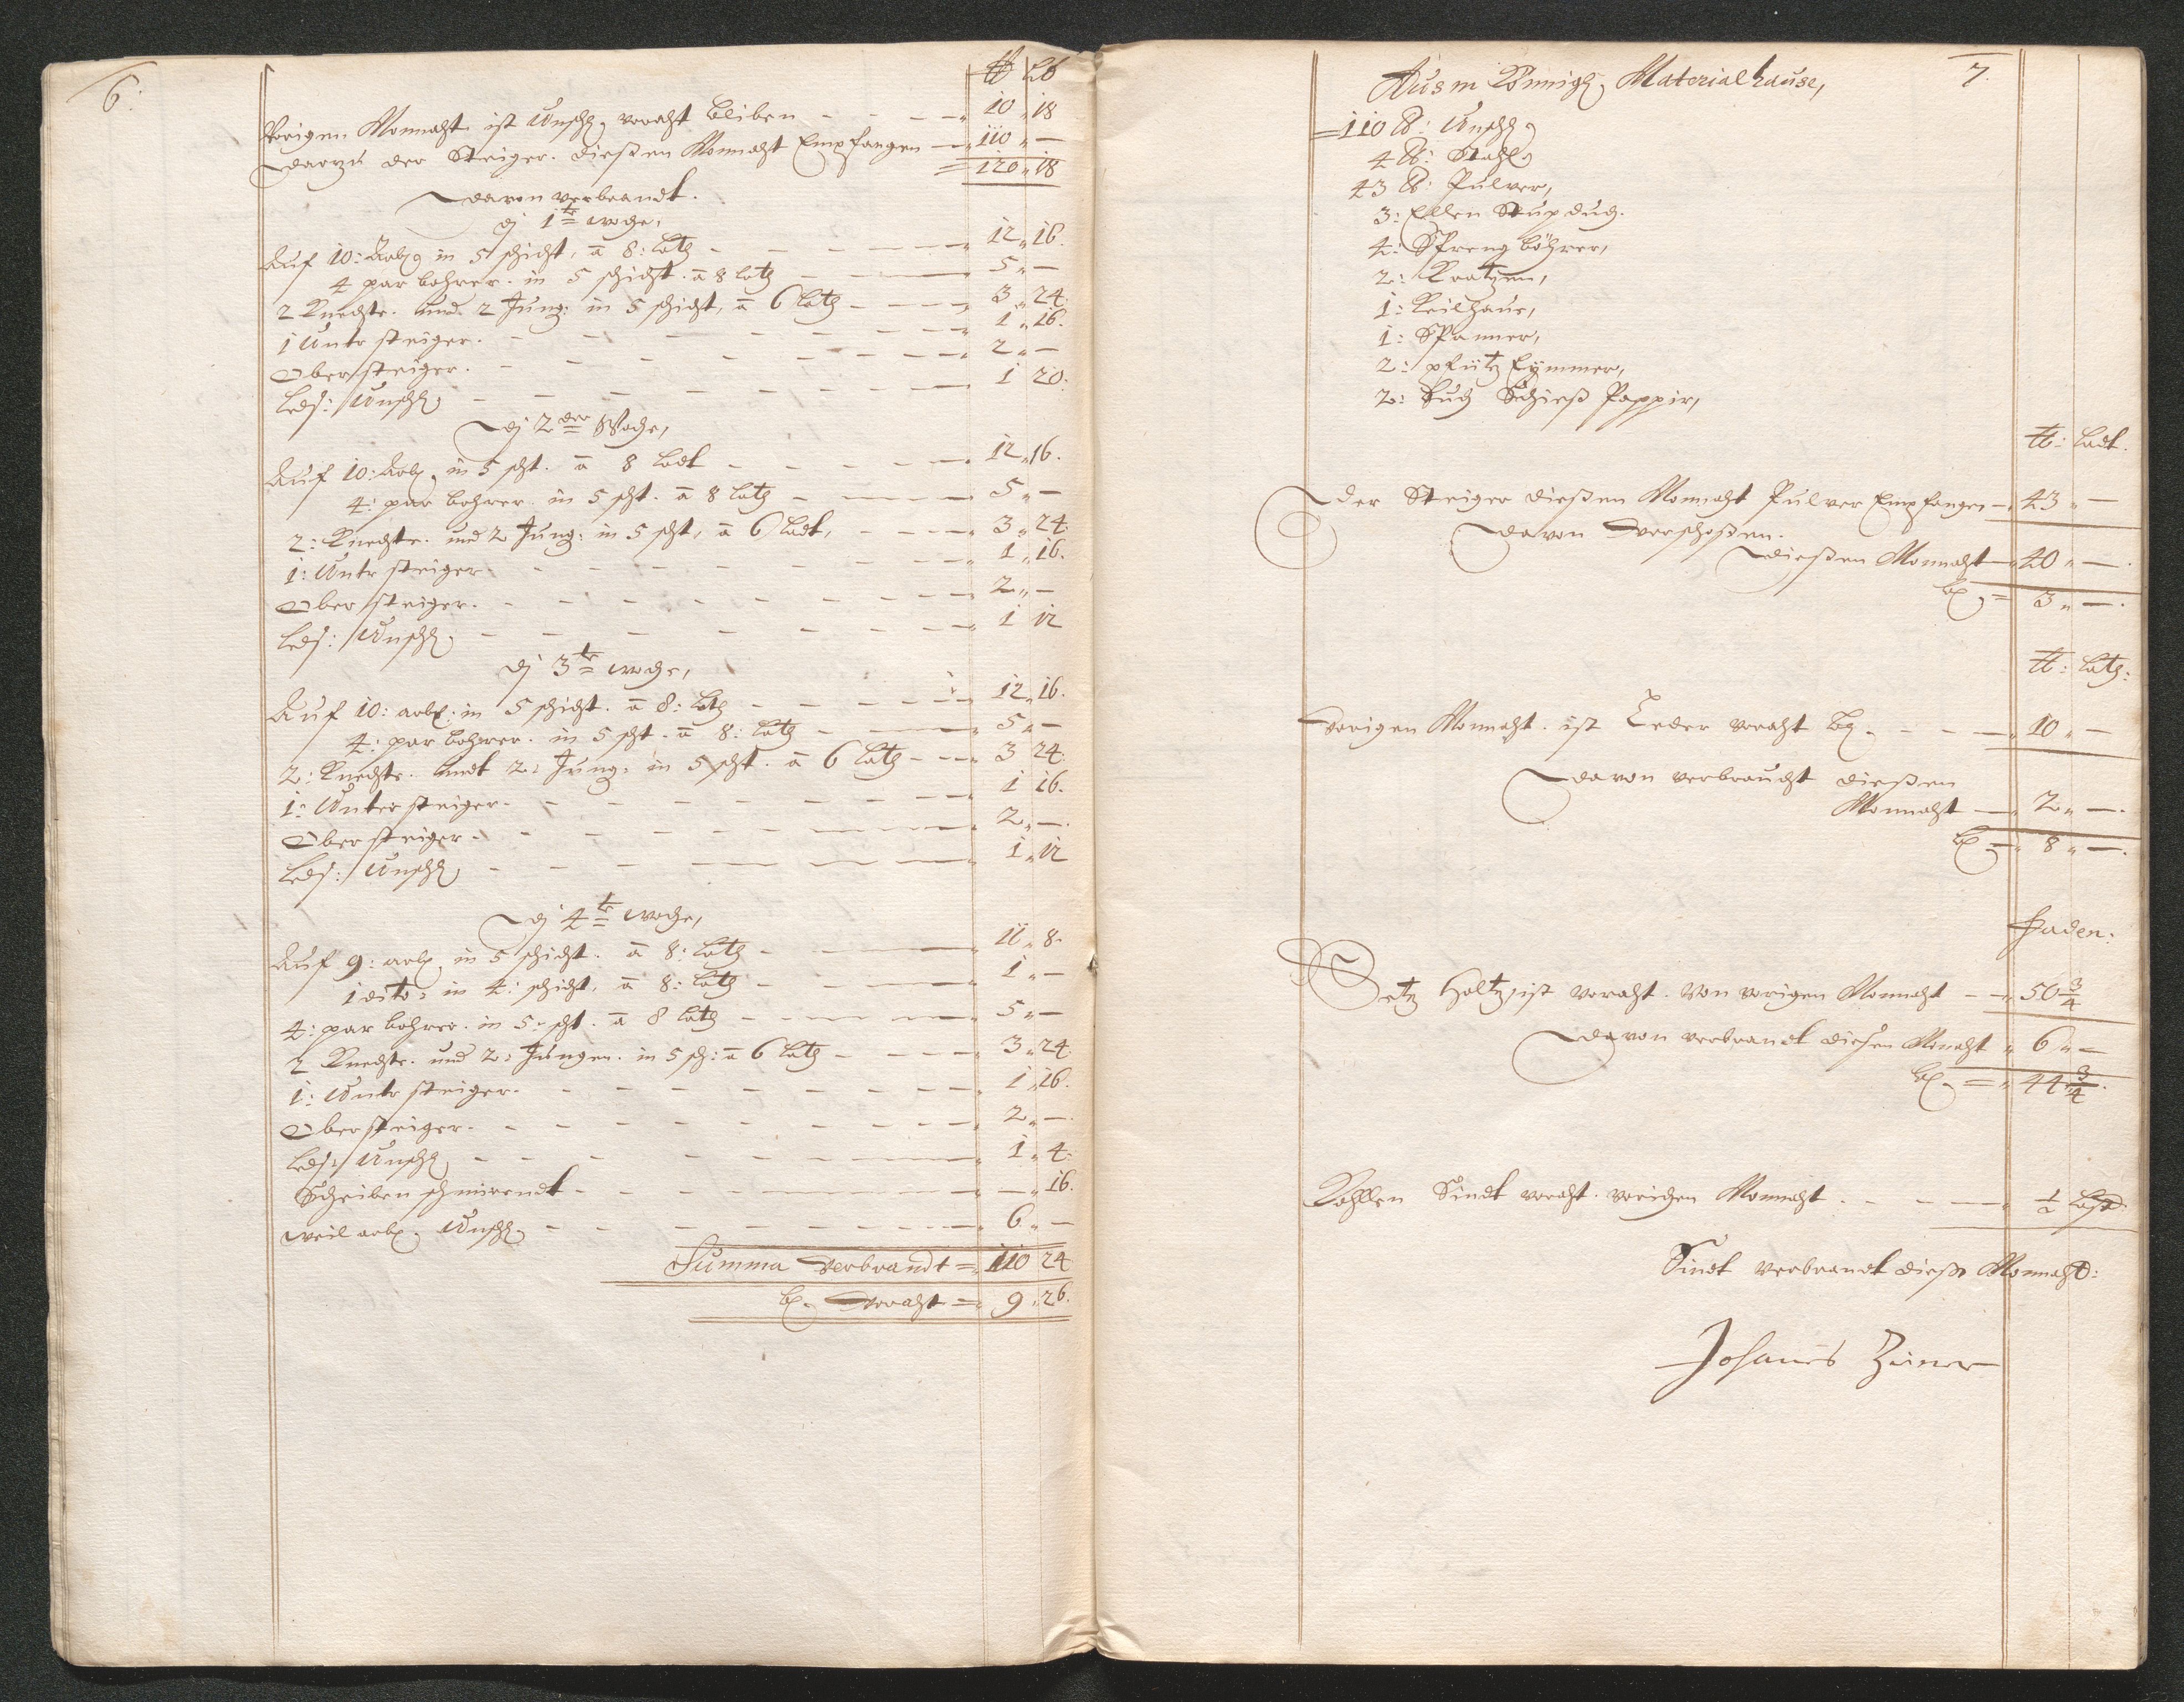 6:
℔ Lb
Vorigen Monnaht ist Unschl. voraht bliben — 10 „ 18
darzu der Steiger. dießen Monnaht Empfangen — 110 „ —
= 120 „ 18
davon verbrandt.
dj 1te woche,
Auf 10: Arb. in 5 schicht, a 8: Loth — 12 „ 16.
4 par bohrer. in 5 schicht. a 8 loth — 5 „ —
2 Knechte. und 2 Jung: in 5 schicht, a 6 loth — 3 „ 24
1 Untr steiger. — 1 „ 16.
Obersteiger. — 2 „ —
Leds: Unschl. — 1 20:
dj 2der Woche,
Auf 10: Arb. in 5 scht. a 8 Lodt — 12 „ 16.
4: par bohrer. in 5 scht. a 8 loth — 5 „ —
2: Knechte. und 2 Jung: in 5 scht, a 6 Lodt, — 3 „ 24
1: Untr steiger — 1 „ 16.
Ober steiger. — 2 „ —
Leds: Unschl. — 1 12
dj 3te woche,
Auf 10: arb. in 5 schicht. a 8: Loth — 12 „ 16.
4: par bohrer. in 5 scht. a 8: loth — 5 „ —
2: Knechte. undt 2: Jung: in 5 scht. a 6 Loth — 3 24
1: Unter steiger. — 1 16.
Obersteiger — 2 „ —
Leds: Unschl. — 1 „ 12
dj 4te woche,
Auf 9: arb. in 5 schicht. a 8: Loth — 11 „ 8.
1 dito: in 4: schicht, a 8: Loth — 1 „ —
4: par bohrer. in 5: scht. a 8 loth — 5 „ —
2 Knechte. und 2: Jungen. in 5 sch: a 6 Loth — 3 „ 24
1: Untr steiger. — 1 „ 16.
Obersteiger. — 2 „ —
Leds: Unschl. — 1 „ 4:
Scheiben schmirendt — — „ 16.
weil arb. Unschl. — 6 „ —
Summa verbrandt = 110 24
bl. Voraht = 9 „ 26.
7.
Aus m Königl. Materialhause,
= 110 ℔: Unschl.
4 ℔: Stahl
43 ℔: Pulver,
3: Ellen Stup duch.
4: Spreng böhrer,
2: Kratzen,
1: Keilhaue,
1: Spanner,
2: pfütz Eymmer,
2: Buch Schieß Pappir,
℔: Lodt.
Der Steiger dießen Monnaht Pulver Empfangen — 43 „ —
davon verschoßen.
dießen Monnaht — 40 „ —
bl. = 3 „ —.
℔: Loth:
Vorigen Monnaht. ist Leder voraht bl. — 10 „ —
davon verbraucht dießen
Monnaht — 2 „ —.
bl. — 8 „ —.
Faden:
Setz Holtz ist voraht. von vorigen Monnaht — 50 3/4
davon verbrandt diesen Monaht „ 6 „ —
bl. = „ 44 3/4.
Kohllen Sindt voraht. vorichen Monnaht — 1/2 Last
Sindt verbrandt dieße Monnaht:
Johanes Ziner